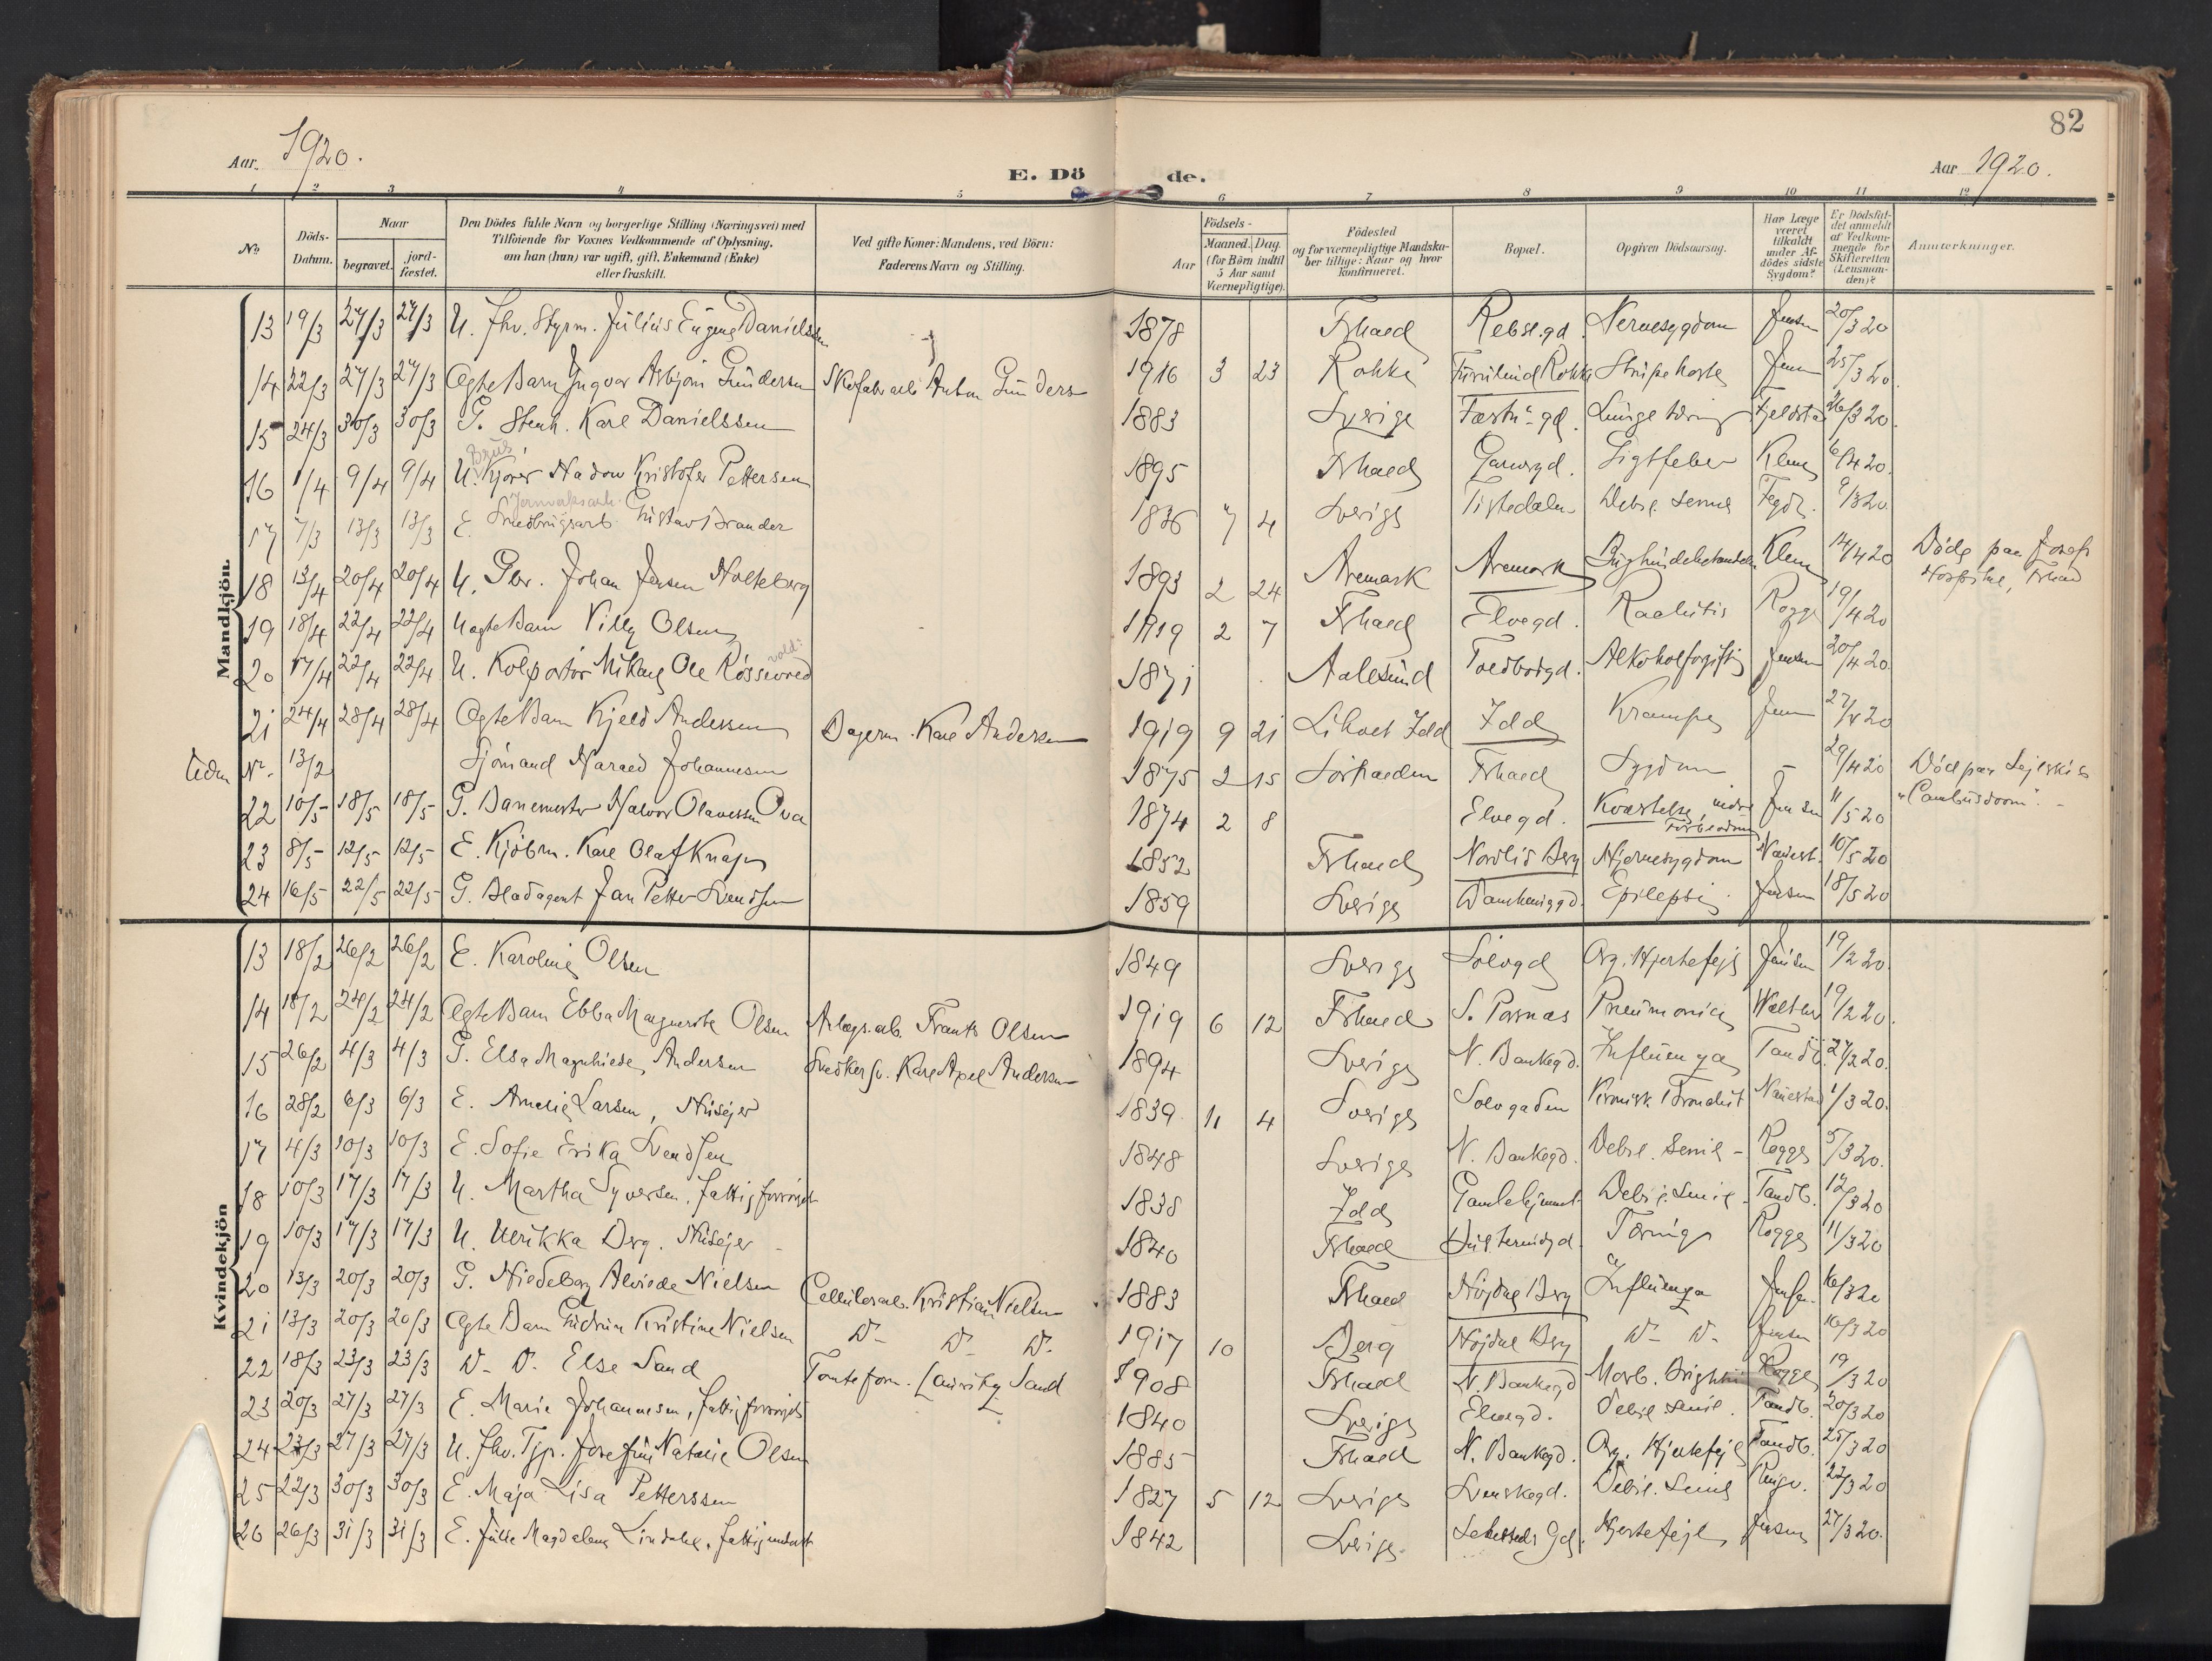 82
Aar. 1920.
E. Dö de.
Aar 1920.
1 2 3 4 5 6 7 8 9 10 11 12
No.
Döds-Datum.
Naar
begravet.
jord-fæstet.
Den Dödes fulde Navn og borgerlige Stilling (Næringsvei) med
Tilföiende for Voxnes Vedkommende af Oplysning,
om han (hun) var ugift, gift, Enkemand (Enke)
eller fraskilt.
Ved gifte Koner: Mandens, ved Börn:
Faderens Navn og Stilling.
Födsels-
Aar
Maaned. Dag.
(for Börn indtil
5 Aar samt
Værnepligtige).
Födested
og for værnepligtige Mandska-
ber tillige: Naar og hvor
konfirmeret.
Bopæl.
Opgiven Dödsaarsag.
Har Læge
været
tilkaldt
under Af-
dödes sidste
Sygdom?
Er Dödsfal-
det anmeldt
af Vedkom-
mende for
Skifteretten
(Lensman-
den)?
Anmærkninger.
Mandkjön.
13 19/3 27/3 27/3 U. fhv. Styrm. Julius Eugen Danielssen 1878 Frhald Rebsl.gd. Nervesygdom Jensen 20/3 20
14 22/3 27/3 27/3 Ægte Barn Yngvar Asbjörn Gundersen Skofabr.arb. Anton Gunders 1916 3 23 Rokke Rokke Strupehoste Jensen 25/3 20.
15 24/3 30/3 30/3 G. Stenh. Karl Danielssen 1883 Sverige Fæstn.gd. Lungetæring Fjeldstad 26/3 20.
Brug
16 1/4 9/4 9/4 U. Kjører Kristofer Pettersen 1895 Frhald Gigtfeber Klem 6/4 20.
Jernverksarb.
17 7/3 13/3 13/3 E. Gustav Brander 1836 7 4 Sverige Tistedalen Debil. senil Fegdr. 9/3 20.
18 13/4 20/4 20/4 U. Gbr. Johan Jensen Holteberg 1893 2 24 Aremark Aremark Klem 14/4 20 Döde paa Josefs
Hospital, Frhald
19 18/4 22/4 22/4 Uægte Barn Villy Olsen 1919 2 7 Frhald Elvegd. Rachitis Rogge 19/4 20
vold:
20 17/4 22/4 22/4 U. Kolportör Mikael Ole Røssevold 1871 Aalesund Toldbodgd. Alkoholforgiftn Jensen 20/4 20.
21 24/4 28/4 28/4 Ægte Barn Kjeld Andersen Bagerm. Karl Andersen 1919 9 21 Lihvet Idd Idd Krampe Jensen 27/4 20
Uden Nr. 13/2 Sjömand Harald Johannesen 1875 2 15 Sörhalden Frhald Sygdom – 29/4 20 Död paa Sejlskib
"Cambusdoon". –
22 10/5 18/5 18/5 G. Banemester Halvor Olavessen Ova 1874 2 8 Elvegd. Kvæstelse, indre
Forblødning Jensen 11/5 20
23 8/5 12/5 12/5 E. Kjöbm. Karl Olaf Knapp 1852 Frhald Nordli i Berg Hjernesygdom Nauest. 10/5 20
24 16/5 22/5 22/5 G. Bladagent Jan Petter Svendsen 1859 Sverige Damhauggd. Epilepsi Jensen 18/5 20
Kvindekjön
13 18/2 26/2 26/2 E. Karoline Olsen 1849 Sverige Sölvgd. Org. Hjertefejl Jensen 19/2 20.
14 18/2 24/2 24/2 Ægte Barn Ebba Margueritte Olsen Anlægs.arb. Frants Olsen 1919 6 12 Frhald S. Parnas Pneumonia Walther 19/2 20.
15 26/2 4/3 4/3 G. Elsa Magnhilde Andersen Snedkersv. Karl Axel Andersen 1894 Sverige N. Bankegd. Influenza Tandb. 27/2 20.
16 28/2 6/3 6/3 E. Amelie Larsen, Husejer 1839 11 4 Sverige Sölvgaden Kronisk Bronchit Nauestad 1/3 20.
17 4/3 10/3 10/3 E. Sofie Erika Svendsen 1848 Sverige N. Bankegd. Debil. senil – Rogge 5/3 20.
18 10/3 17/3 17/3 U. Martha Syversen. fattigforsörget 1838 Idd Gamlehjemmet Debil. senil. Tandb. 12/3 20
19 10/3 17/3 17/3 U. Ulrikka Berg. Husejer – 1840 Frhald Tæring Rogge 11/3 20
20 13/3 20/3 20/3 G. Hildeborg Alvilde Nielsen Cellulosearb. Kristian Nielsen 1883 Frhald Höjdal Berg Influenza Jensen 16/3 20
21 13/3 20/3 20/3 Ægte Barn Gudrun Kristine Nielsen D– D– D– 1917 10 Berg Höjdal Berg D– D– Jensen 16/3 20
22 18/3 23/3 23/3 D– D– Else Sand Tomteform. Lauritz Sand 1908 Frhald N. Bankegd Morb. Brightii Rogge 19/3 20
23 20/3 27/3 27/3 E. Marie Johannesen, fattigforsörget 1840 Sverige Elvegd. Debil. senil. Tandb. 20/3 20
24 23/3 27/3 27/3 U. fhv. Tjp. Josefine Natalie Olsen 1885 Frhald N. Bankegd. Org. Hjertefejl Tandb. 25/3 20
25 22/3 30/3 30/3 E. Maja Lisa Petterssen 1827 5 12 Sverige Svenskegd. Debil. senil 22/3 20
26 26/3 31/3 31/3 E. Julie Magdalena Lindahl, fattigunderst 1842 Sverige Hjertefejl Jensen 27/3 20.